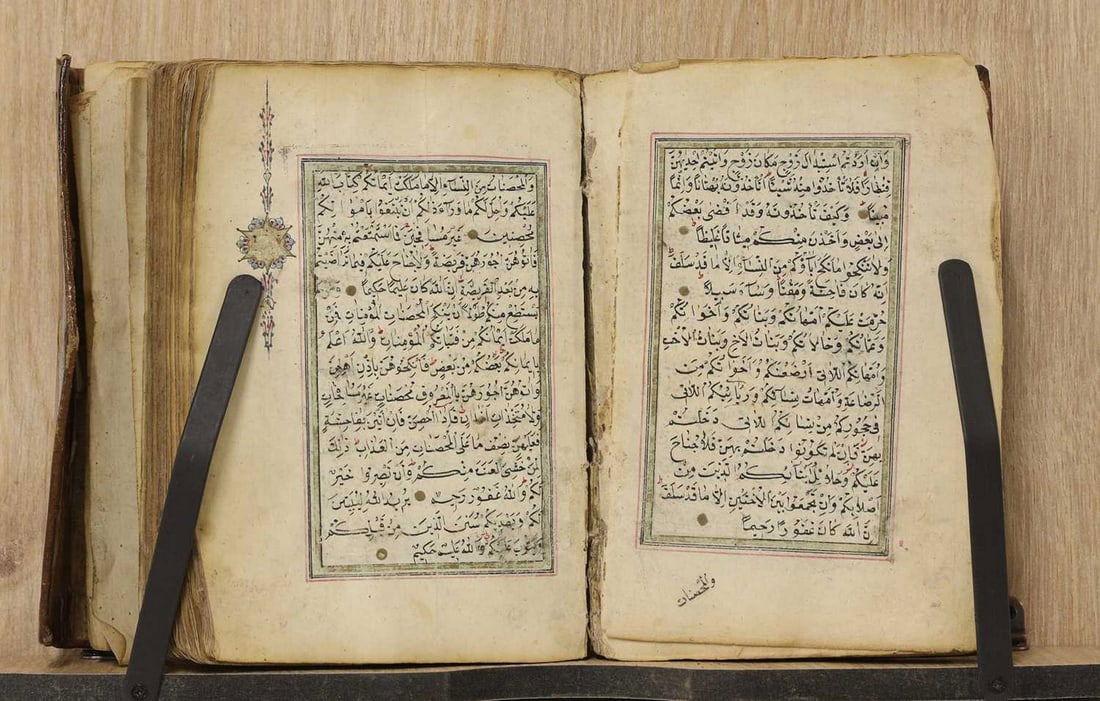 وان اردتم استبدال زوج مكان زوج واتيتم احديهن
قنطارا فلا تأخذوا منه شيئا اتأخذونه بهتانا واثما
مبينا وكيف تأخذونه وقد افضى بعضكم
الى بعض واخذن منكم ميثاقا غليظا
ولا تنكحوا ما نكح اباؤكم من النساء الا ما قد سلف
انه كان فاحشة ومقتا وساء سبيلا
حرمت عليكم امهاتكم وبناتكم واخواتكم
وعماتكم وخالاتكم وبنات الاخ وبنات الاخت
وامهاتكم اللاتى ارضعنكم واخواتكم من
الرضاعة وامهات نسائكم وربائبكم اللاتى
فى حجوركم من نسائكم اللاتى دخلتم
بهن فان لم تكونوا دخلتم بهن فلا جناح
عليكم وحلائل ابنائكم الذين من
اصلابكم وان تجمعوا بين الاختين الا ما قد سلف
ان الله كان غفورا رحيما
والمحصنات
والمحصنات من النساء الا ما ملكت ايمانكم كتاب الله
عليكم واحل لكم ما وراء ذلكم ان تبتغوا باموالكم
محصنين غير مسافحين فما استمتعتم به منهن
فاتوهن اجورهن فريضة ولا جناح عليكم فيما تراضيتم
به من بعد الفريضة ان الله كان عليما حكيما
يستطع منكم طولا ان ينكح المحصنات المؤمنات فمن
ما ملكت ايمانكم من فتياتكم المؤمنات والله اعلم
بايمانكم بعضكم من بعض فانكحوهن باذن اهلهن
واتوهن اجورهن بالمعروف محصنات غير مسافحات
ولا متخذات اخدان فاذا احصن فان اتين بفاحشة
فعليهن نصف ما على المحصنات من العذاب ذلك
لمن خشى العنت منكم وان تصبروا خير
لكم والله غفور رحيم يريد الله ليبين
لكم ويهديكم سنن الذين من قبلكم
ويتوب عليكم والله عليم حكيم